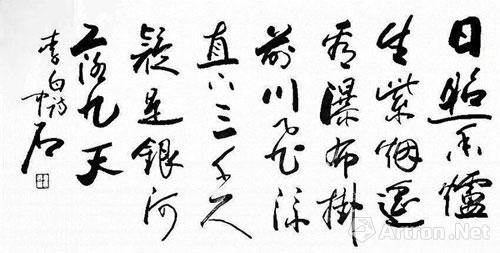 日照香爐
生紫烟遥
看瀑布掛
前川飛流
直下三千尺
疑是銀河
落九天
李白詩 中石
Artron.Net